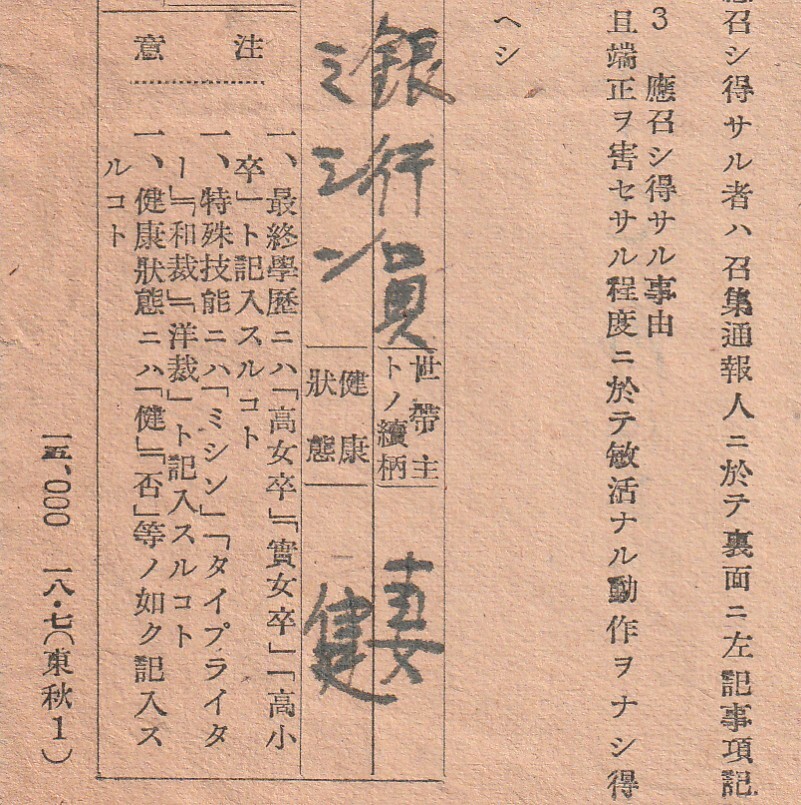 應召シ得サル者ハ召集通報人ニ於テ裏面ニ左記事項記
3 應召シ得サル事由
且端正ヲ害セサル程度ニ於テ敏活ナル動作ヲナシ得
ヘシ
銀行員
世帶主
トノ續柄
妻
ミシン
健康
狀態
健
注意
一、最終學歷ニハ「高女卒」「實女卒」「高小
卒」ト記入スルコト
一、特殊技能ニハ「ミシン」「タイプライタ
ー」「和裁」「洋裁」ト記入スルコト
一、健康狀態ニハ「健」「否」等ノ如ク記入ス
ルコト
一五、〇〇〇 一八・七(東秋1)